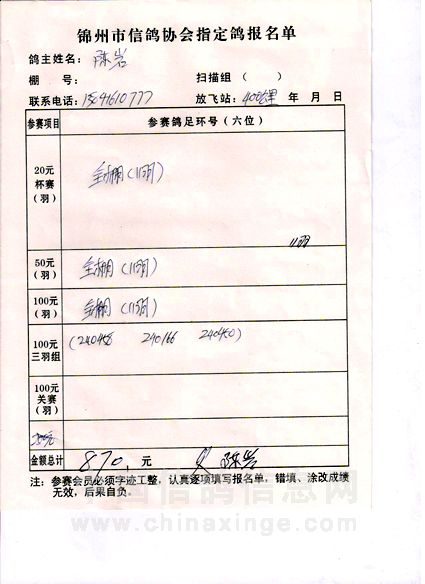 锦州市信鸽协会指定鸽报名单
鸽主姓名：陈岩
棚 号： 扫描组（ ）
联系电话：15041610777 放飞站：400公里 年 月 日
参赛项目 参赛鸽足环号（六位）
20元
杯赛
（羽）
全棚（11羽）
11羽
50元
（羽）
全棚（11羽）
100元
（羽）
全棚（11羽）
100元
三羽组
（240458 240166 240450）
100元
关赛
（羽）
金额总计 870 元 陈岩
注：参赛会员必须字迹工整，认真逐项填写报名单，错填、涂改成绩
无效，后果自负。
中国信鸽信息网
www.chinaxinge.com